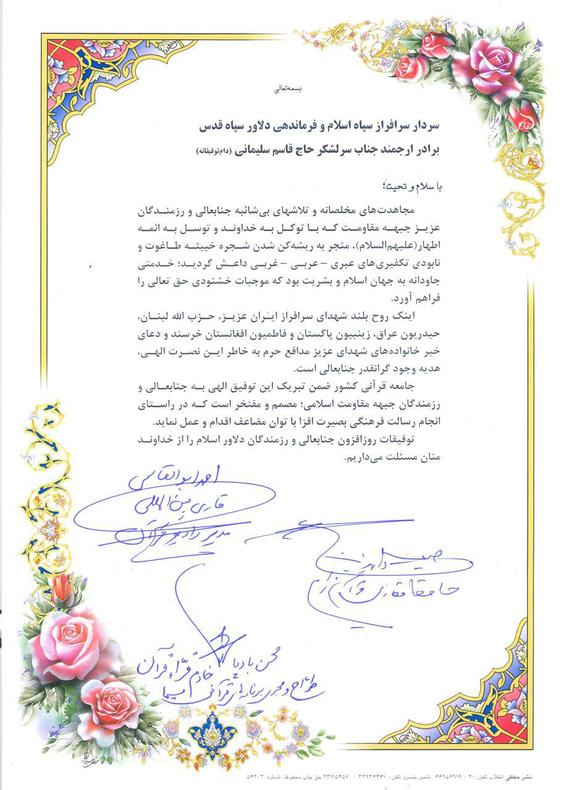 بسمه‌تعالی
سردار سرافراز سپاه اسلام و فرماندهی دلاور سپاه قدس
برادر ارجمند جناب سرلشکر حاج قاسم سلیمانی (دام‌توفیقاته)
با سلام و تحیت؛
مجاهدت‌های مخلصانه و تلاشهای بی‌شائبه جنابعالی و رزمندگان
عزیز جبهه مقاومت که با توکل به خداوند و توسل به ائمه
اطهار(علیهم‌السلام)، منجر به ریشه‌کن شدن شجره خبیثه طاغوت و
نابودی تکفیری‌های عبری – عربی – غربی داعش گردید؛ خدمتی
جاودانه به جهان اسلام و بشریت بود که موجبات خشنودی حق تعالی را
فراهم آورد.
اینک روح بلند شهدای سرافراز ایران عزیز، حزب الله لبنان،
حیدریون عراق، زینبیون پاکستان و فاطمیون افغانستان خرسند و دعای
خیر خانواده‌های شهدای عزیز مدافع حرم به خاطر این نصرت الهی،
هدیه وجود گرانقدر جنابعالی است.
جامعه قرآنی کشور ضمن تبریک این توفیق الهی به جنابعالی و
رزمندگان جبهه مقاومت اسلامی؛ مصمم و مفتخر است که در راستای
انجام رسالت فرهنگی بصیرت افزا با توان مضاعف اقدام و عمل نماید.
توفیقات روزافزون جنابعالی و رزمندگان دلاور اسلام را از خداوند
منان مسئلت می‌داریم.
احمد ابوالقاسمی
قاری بین‌المللی
مدیر رادیو قرآن
محسن بادپا
خادم قراء قرآن
طراح و مجری برنامه‌های قرآنی سیما
نشر حقانی انقلاب تلفن: ۲۰ - ۶۶۹۵۶۹۱۹ ناصر خسرو تلفن: ۳۳۹۲۶۴۶۱ - ۳۳۱۱۵۴۵۷ حق چاپ محفوظ. شماره ۵۶۲/۳